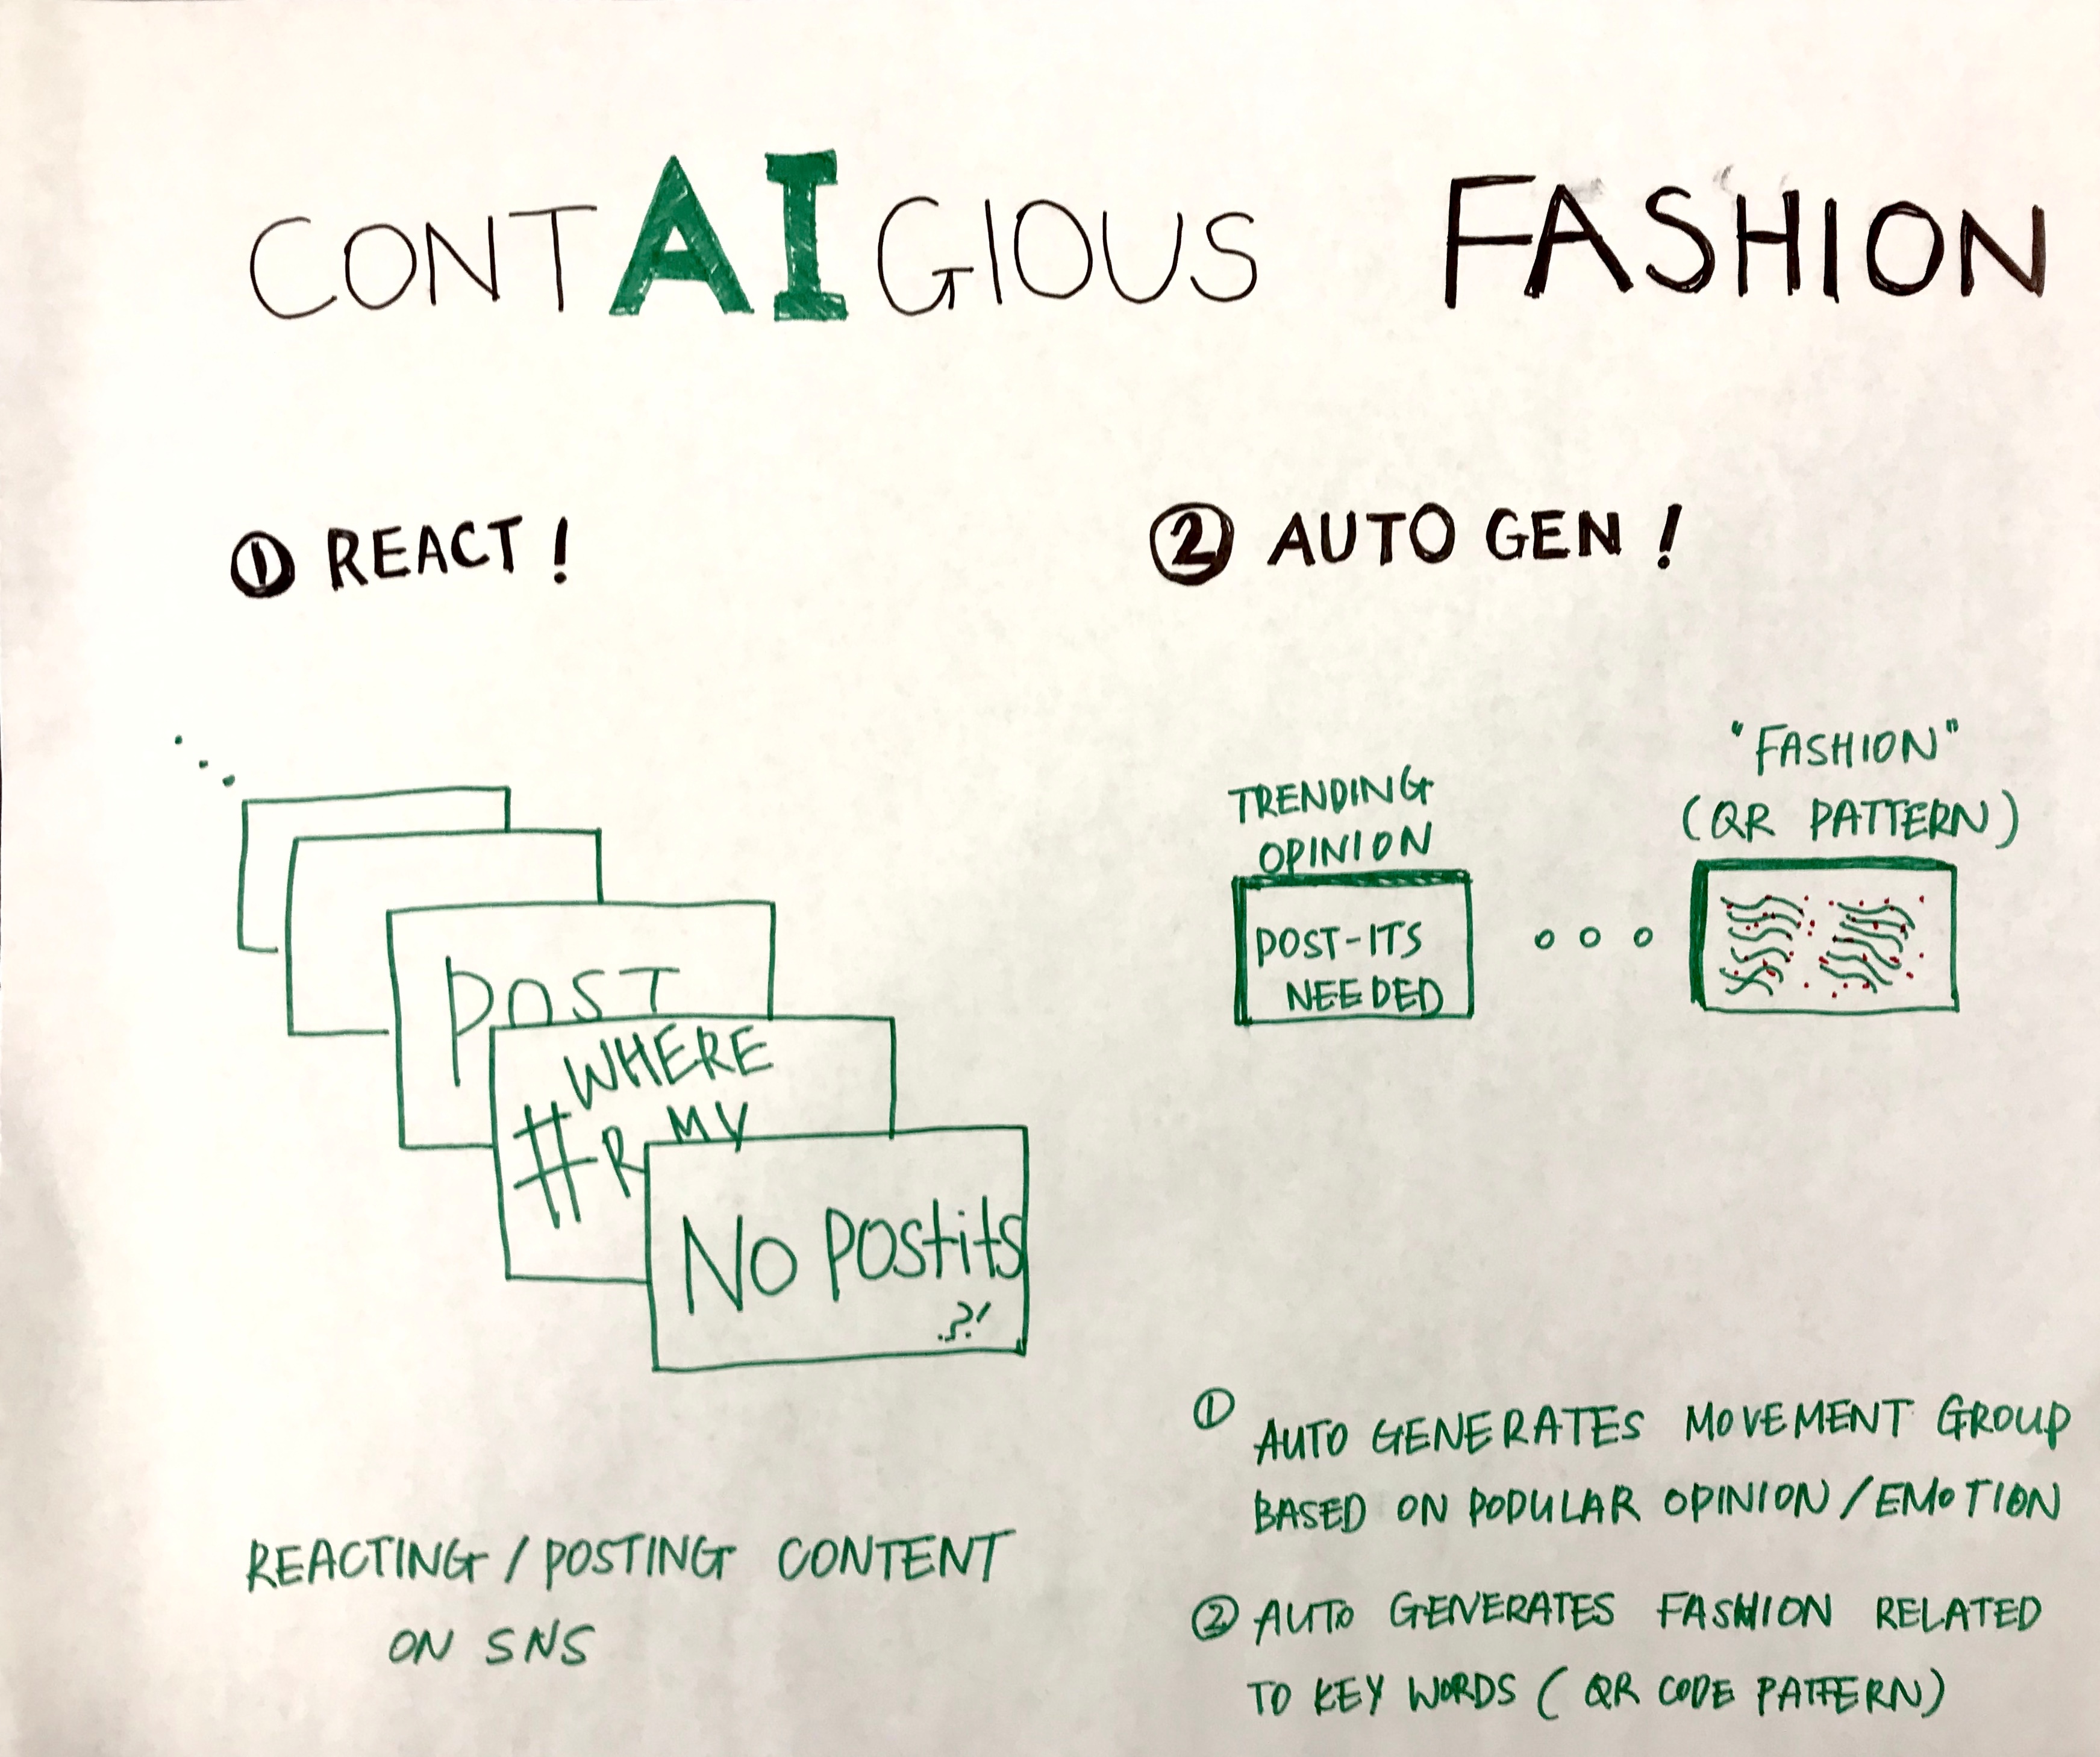 CONTAIGIOUS FASHION
① REACT!
POST
WHERE
# R MY
NO Postits
?!
REACTING / POSTING CONTENT
ON SNS
② AUTO GEN!
TRENDING
OPINION
POST-ITS
NEEDED
"FASHION"
(QR PATTERN)
① AUTO GENERATES MOVEMENT GROUP
BASED ON POPULAR OPINION / EMOTION
② AUTO GENERATES FASHION RELATED
TO KEY WORDS ( QR CODE PATTERN)